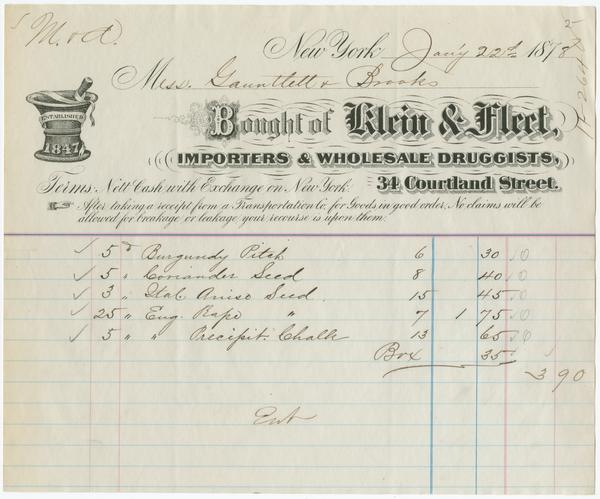 M. & A.
New York Jan'y 22d 1878
Mess. Gauntlett & Brooks
ESTABLISHED
1847
Bought of Klein & Fleet,
IMPORTERS & WHOLESALE DRUGGISTS,
Terms: Nett Cash with Exchange on New York. 34 Courtland Street.
After taking a receipt from a Transportation Co. for Goods in good order, No claims will be
allowed for breakage or leakage, your recourse is upon them.
✓ 5 " Burgundy Pitch 6 30
✓ 5 " Coriander Seed 8 40
✓ 3 " Ital Anise Seed 15 45
✓ 25 " Eng. Rape " 7 1 75
✓ 5 " " Precipit. Chalk 13 65
Box 35
3 90
Ent